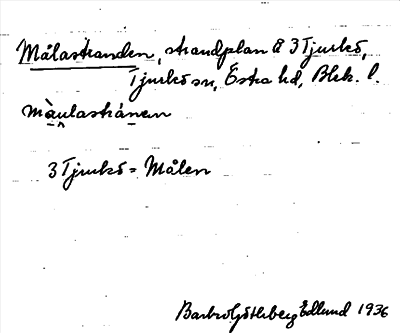 Målastranden, strandplan å 3 Tjurkö,
Tjurkö sn, Östra hd, Blek. l.
màulastránen
3 Tjurkö = Målen
Barbro Götheberg Edlund 1936